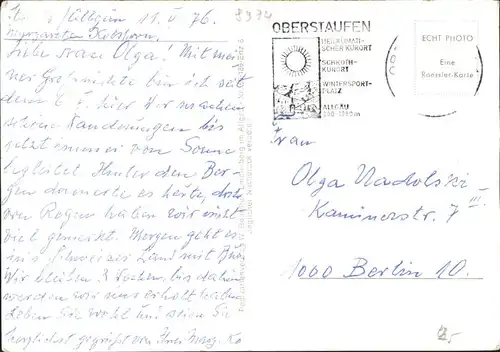 Allgäu 11. V 76.
8334
Liebe Frau Olga! Mit mei-
ner bin ich seit
dem 6. V. hier. Wir machen
schöne Wanderungen bis
jetzt immer von Sonne
begleitet. Hinter den Ber-
gen donnerte es heute, doch
von Regen haben wir nicht
viel gemerkt. Morgen geht es
ins Schweizer Land mit
Wir bleiben 3 Wochen, bis dahin
werden wir uns erholt haben.
Leben Sie wohl und seien Sie
herzlichst gegrüßt von Ihrer Marg. Ko
OBERSTAUFEN
HEILKLIMATI-
SCHER KURORT
SCHROTH-
KURORT
WINTERSPORT-
PLATZ
ALLGÄU
ECHT PHOTO
Eine
Roessler-Karte
Frau
Olga Nadolski
Kaminerstr. 7 III.
1000 Berlin 10.